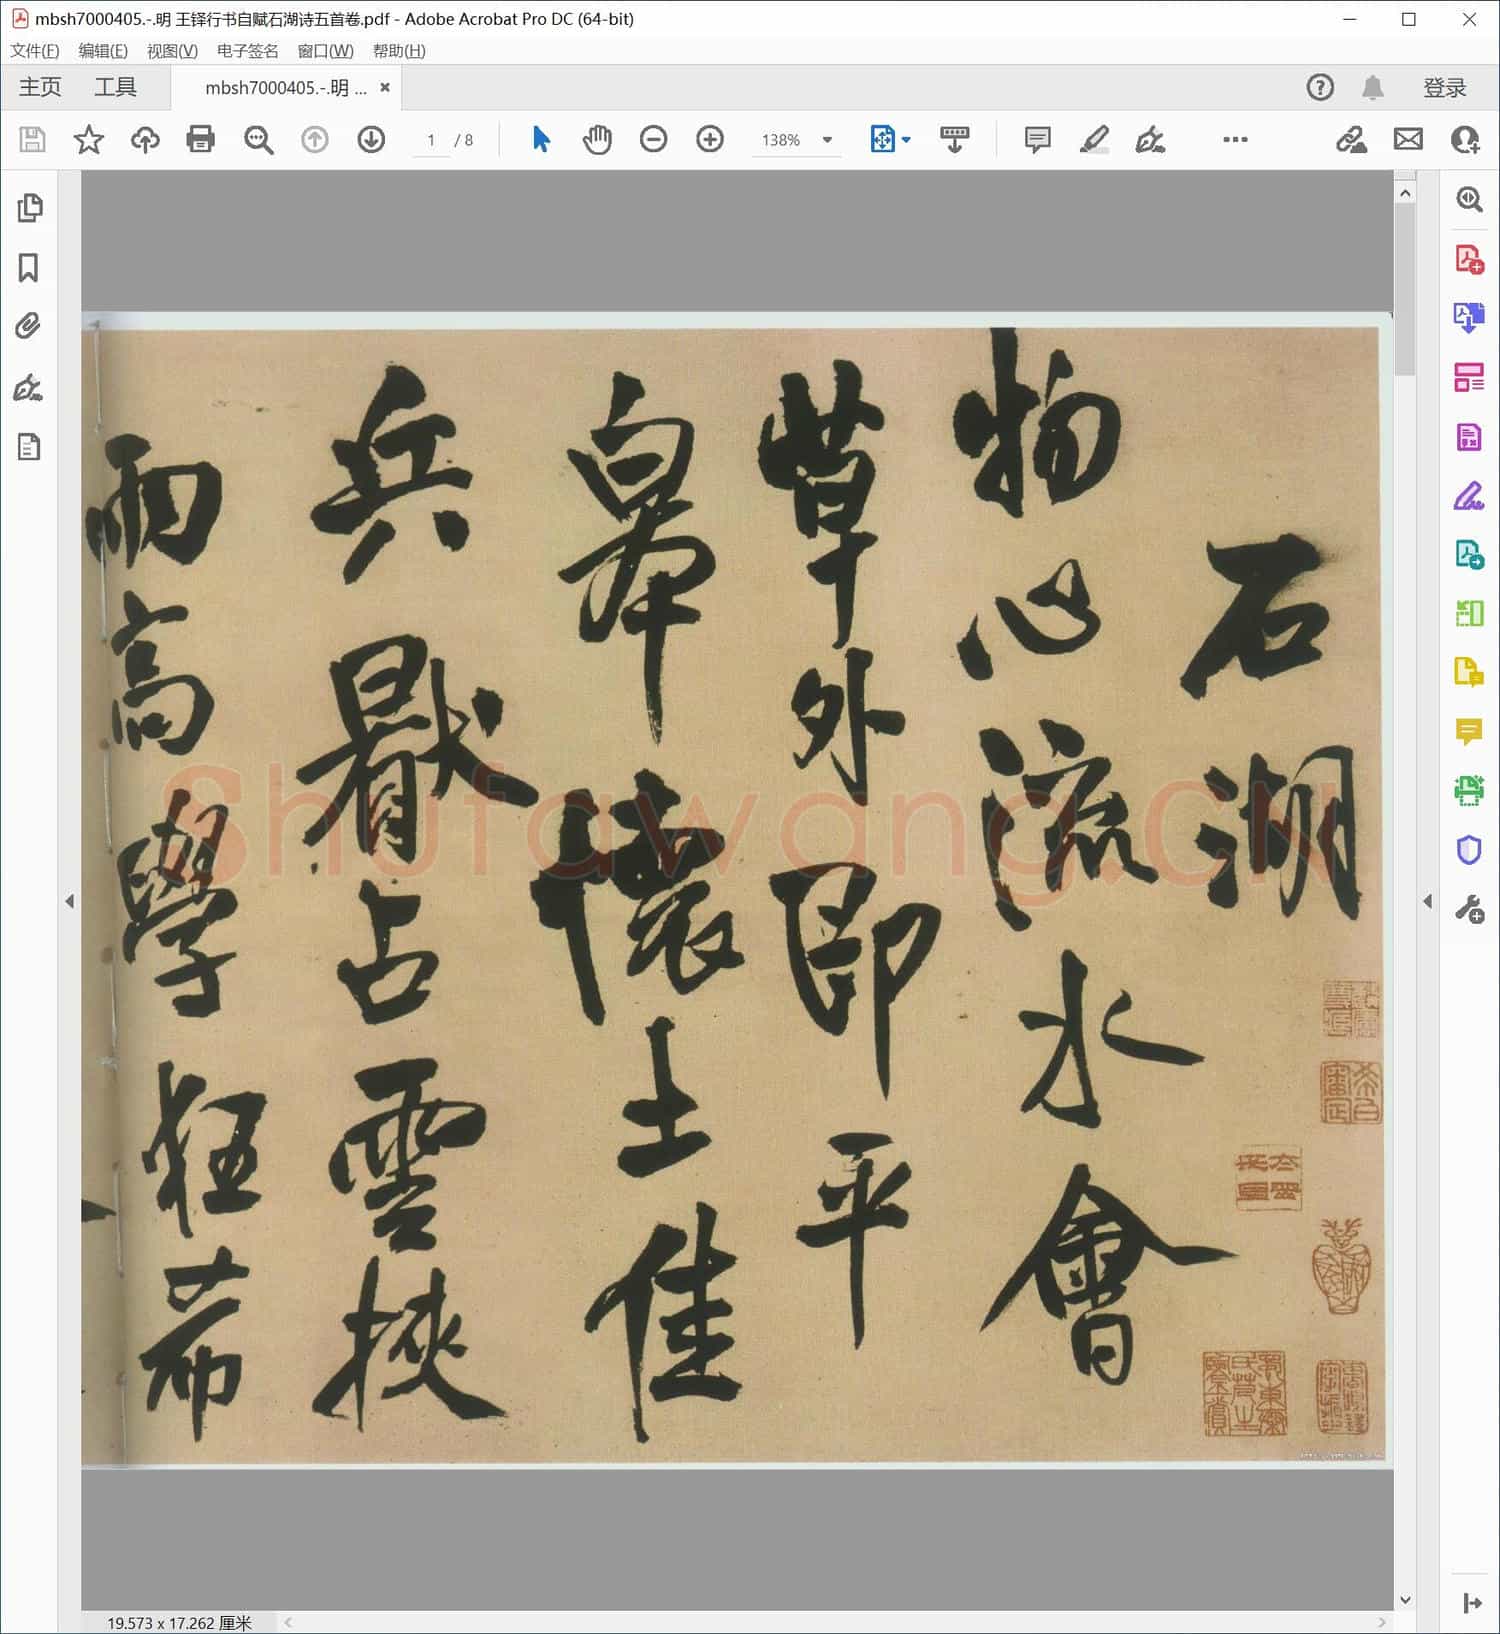 mbsh7000405.-.明 王铎行书自赋石湖诗五首卷.pdf - Adobe Acrobat Pro DC (64-bit)
文件(F) 编辑(E) 视图(V) 电子签名 窗口(W) 帮助(H)
主页 工具 mbsh7000405.-.明 ... 登录
1 / 8 138%
石湖
物心流水會
草外即平
皋懷土佳
兵厭占雲挾
雨高學狂希
Shufawang.CN
19.573 x 17.262 厘米